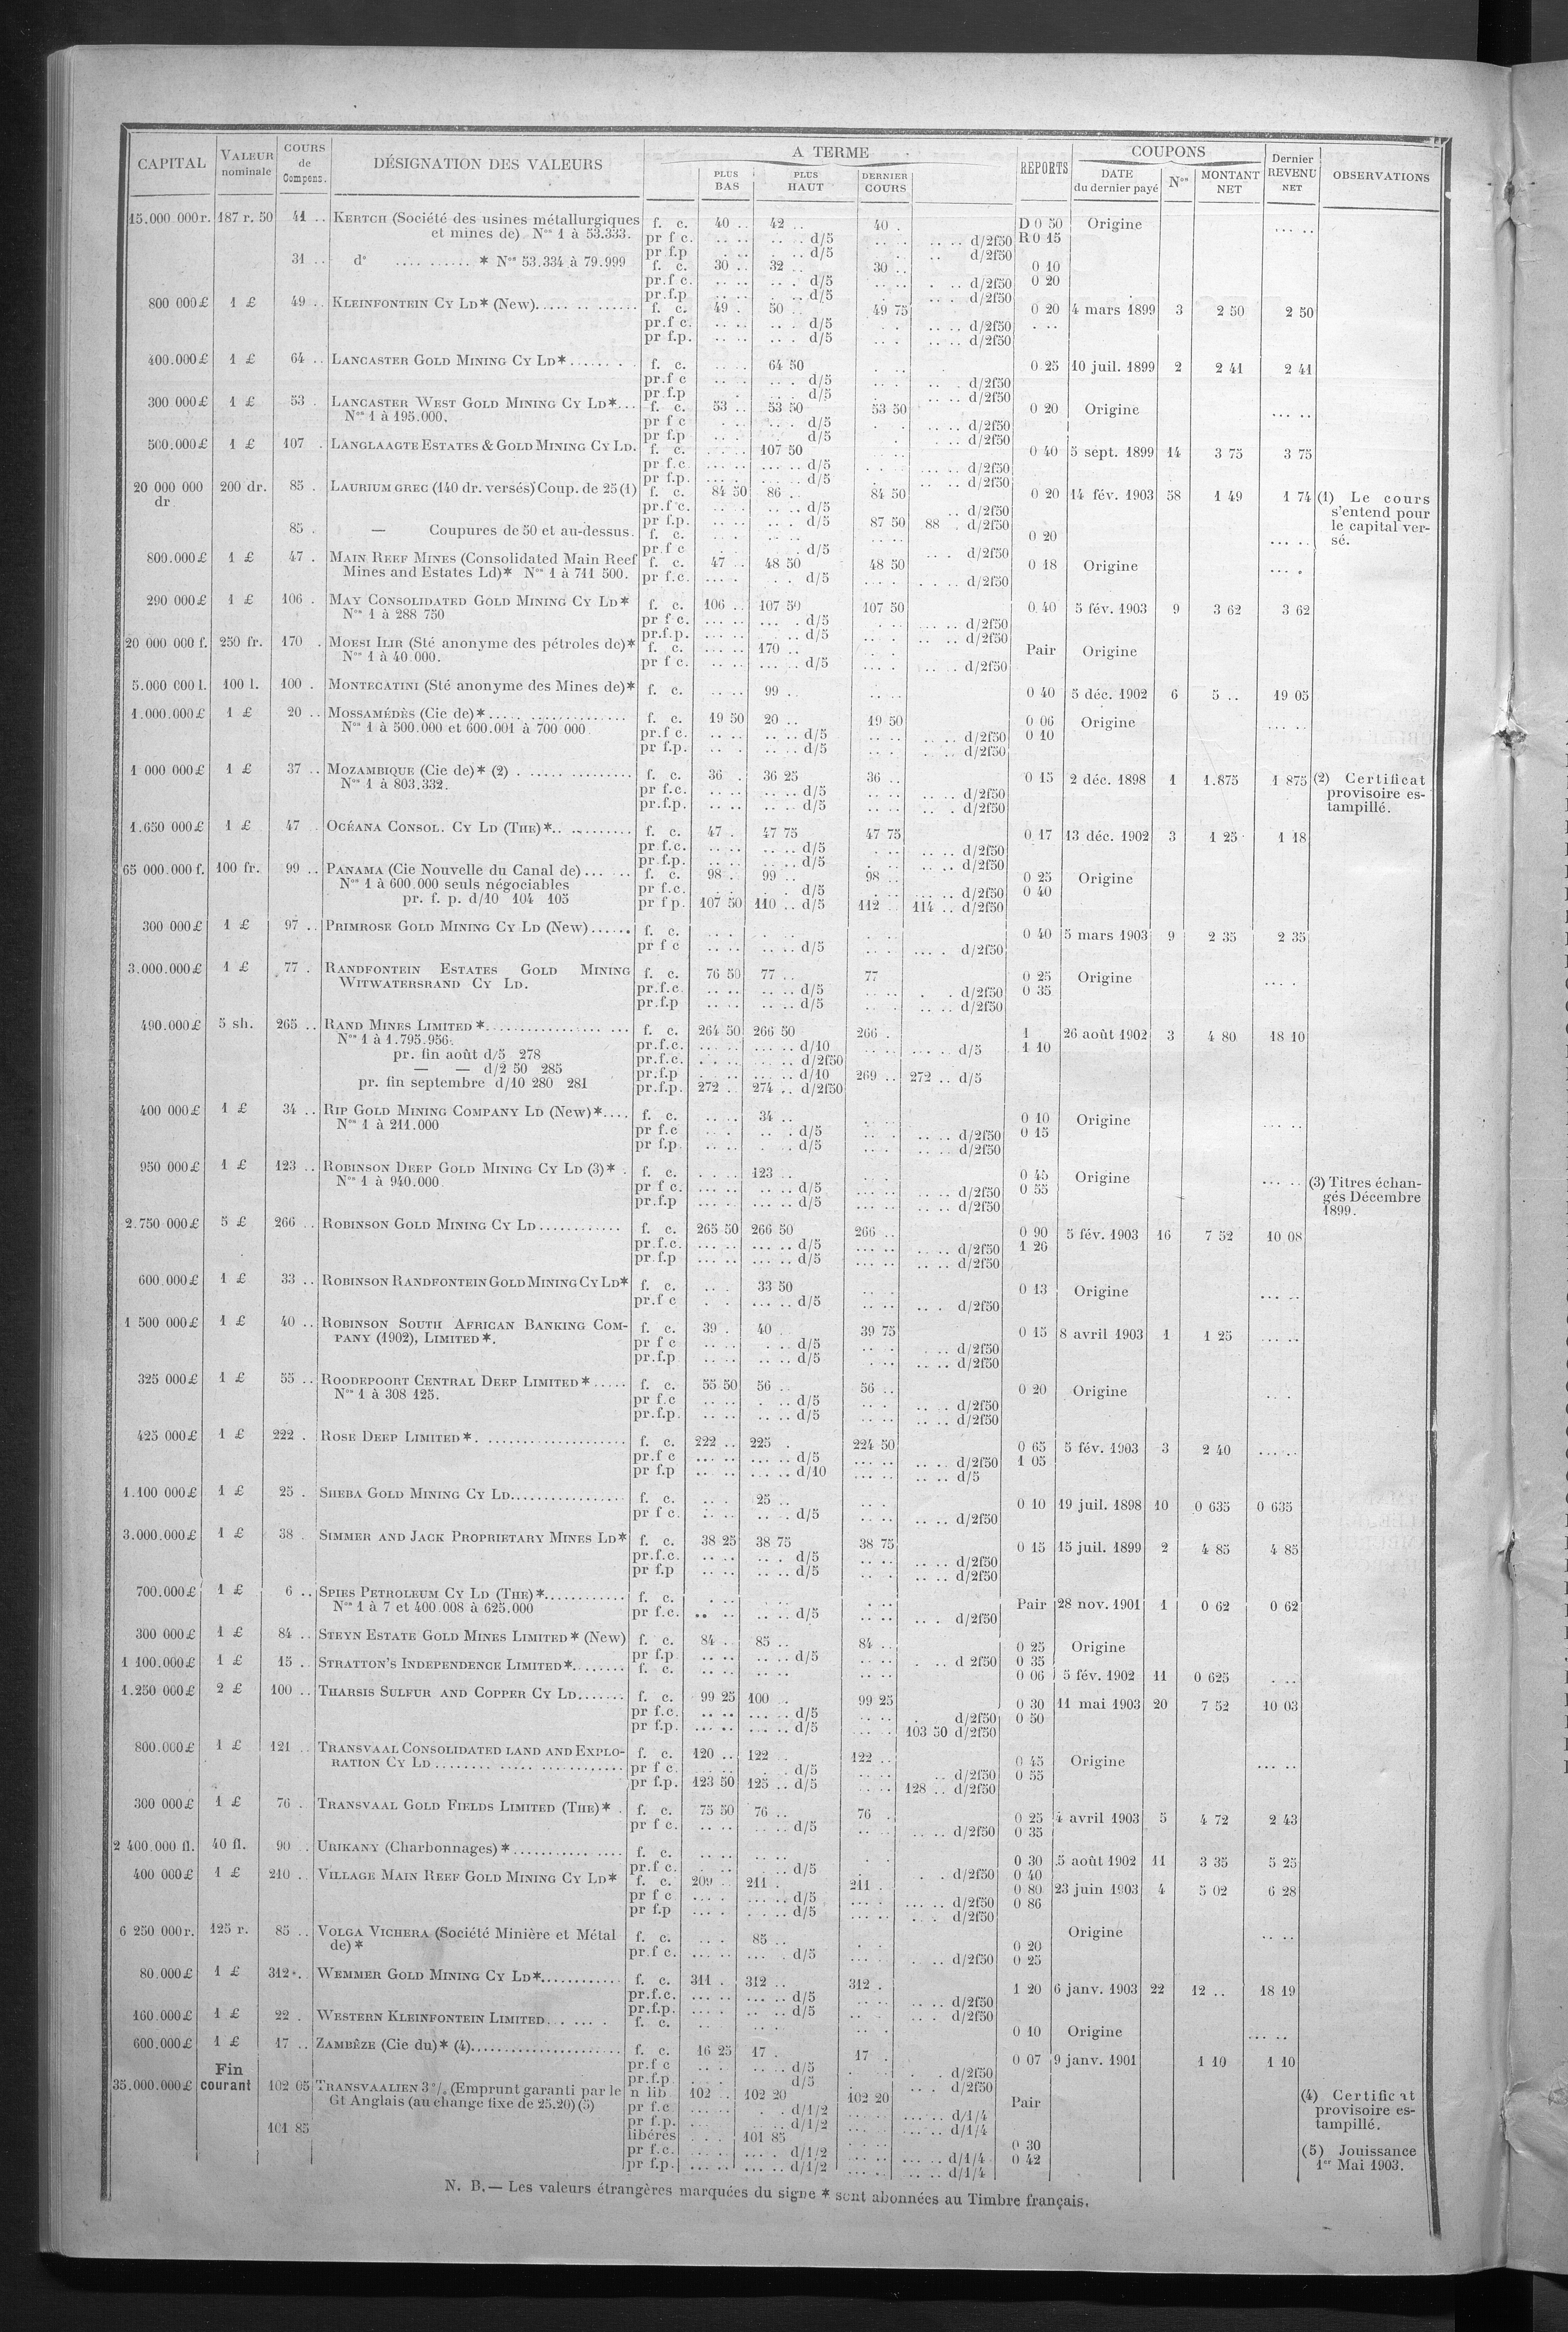 CAPITAL VALEUR nominale COURS de Compens. DÉSIGNATION DES VALEURS A TERME PLUS BAS PLUS HAUT DERNIER COURS REPORTS COUPONS DATE du dernier payé Nos MONTANT NET Dernier REVENU NET OBSERVATIONS
15.000 000r. 187 r. 50 41 .. KERTCH (Société des usines métallurgiques f. c. 40 .. 42 .. 40 . D 0 50 Origine ... ..
et mines de) Nos 1 à 53.333. pr f c. .. .. .. . d/5 .. . .. .. d/2f50 R 0 15
pr f.p . .. .. . d/5 . . .. d/2f50
31 .. do .... .......... * Nos 53.334 à 79.999 f. c. 30 .. 32 .. 30 .. 0 10
pr.f c. .. .. .. . d/5 .. .. . .. d/2f50 0 20
pr.f.p .. .. . .. d/5 . . .. d/2f50
800 000£ 1 £ 49 .. KLEINFONTEIN CY LD* (New)..... .. ....... f. c. 49 . 50 .. 49 75 0 20 4 mars 1899 3 2 50 2 50
pr.f c. .. .. .. . d/5 . . .. .. d/2f50 . ..
pr f.p. .. .. .. . d/5 .. . .. .. d/2f50
400.000£ 1 £ 64 .. LANCASTER GOLD MINING CY LD*...... . . f. c. .. .. 64 50 . .. 0 25 10 juil. 1899 2 2 41 2 41
pr.f c .. .. .. . d/5 .. . .. . d/2f50
pr f.p . .. . d/5 . . .. .. d/2f50
300 000£ 1 £ 53 . LANCASTER WEST GOLD MINING CY LD*... f. c. 53 .. 53 50 53 50 0 20 Origine ... ..
Nos 1 à 195.000. pr f c . .. .. . d/5 . . .. .. d/2f50
pr f.p .. . d/5 . .. .. d/2f50
500.000£ 1 £ 107 . LANGLAAGTE ESTATES & GOLD MINING CY LD. f. c. .. .. 107 50 .. .. 0 40 5 sept. 1899 14 3 75 3 75
pr f.c. ... .. ... .. d/5 . . ... .. d/2f50
pr f.p. ... . .. .. d/5 . . .. .. d/2f50
20 000 000 200 dr. 85 . LAURIUM GREC (140 dr. versés) Coup. de 25 (1) f. c. 84 50 86 .. 84 50 0 20 14 fév. 1903 58 1 49 1 74 (1) Le cours
dr pr.f c. .. .. .. .. d/5 .. d/2f50 s'entend pour
pr f.p. .. .. .. . d/5 87 50 88 . d/2f50 le capital ver-
85 . — Coupures de 50 et au-dessus. f. c. . . .. .. .. .. 0 20 ... .. sé.
pr.f c .. . . d/5 .. . d/2f50
800.000£ 1 £ 47 . MAIN REEF MINES (Consolidated Main Reef f. c. 47 .. 48 50 48 50 0 18 Origine ... .
Mines and Estates Ld)* Nos 1 à 711 500. pr f.c. .. .. . . d/5 .. .. . .. .. d/2f50
290 000£ 1 £ 106 . MAY CONSOLIDATED GOLD MINING CY LD* f. c. 106 .. 107 50 107 50 0.40 5 fév. 1903 9 3 62 3 62
Nos 1 à 288 750 pr f c. ... .. ... . d/5 . .. .. .. d/2f50
pr.f.p. ... .. .. .. d/5 .. . .. .. d/2f50
20 000 000 f. 250 fr. 170 . MOESI ILIR (Sté anonyme des pétroles de)* f. c. .. .. 170 .. . . Pair Origine
Nos 1 à 40.000. pr f c. ... .. ... .. d/5 .. . .. . d/2f50
5.000 000 l. 100 l. 100 . MONTECATINI (Sté anonyme des Mines de)* f. c. .. .. 99 .. .. .. 0 40 5 déc. 1902 6 5 .. 19 05
1.000.000£ 1 £ 20 .. MOSSAMÉDÈS (Cie de)*..... ................ f. c. 19 50 20 .. 19 50 0 06 Origine ... ..
Nos 1 à 500.000 et 600.001 à 700 000 pr.f c. .. .. .. .. d/5 .. . .. .. d/2f50 0 10
pr f.p. .. . .. .. d/5 .. . . .. d/2f50
1 000 000£ 1 £ 37 .. MOZAMBIQUE (Cie de)* (2) . ..... .......... f. c. 36 . 36 25 36 .. 0 15 2 déc. 1898 1 1.875 1 875 (2) Certificat
Nos 1 à 803.332. pr f.c. .. .. .. .. d/5 .. .. .. .. d/2f50 provisoire es-
pr.f.p. .. .. .. .. d/5 .. . .. . d/2f50 tampillé.
1.650 000£ 1 £ 47 . OCÉANA CONSOL. CY LD (THE)*.. .......... f. c. 47 . 47 75 47 75 0 17 13 déc. 1902 3 1 25 1 18
pr f.c. .. .. .. .. d/5 . .. .. .. d/2f50
pr f.p. .. .. .. .. d/5 . . .. .. d/2f50
65 000.000 f. 100 fr. 99 .. PANAMA (Cie Nouvelle du Canal de)... ... f. c. 98 .. 99 .. 98 .. 0 25 Origine
Nos 1 à 600.000 seuls négociables pr f.c. . . . . d/5 . . ... .. d/2f50 0 40
pr. f. p. d/10 104 105 pr f p. 107 50 110 .. d/5 112 . 114 .. d/2f50
300 000£ 1 £ 97 .. PRIMROSE GOLD MINING CY LD (New)...... f. c. .. . . .. . .. 0 40 5 mars 1903 9 2 35 2 35
pr f c .. .. .. .. d/5 .. .. ... . d/2f50
3.000.000£ 1 £ 77 . RANDFONTEIN ESTATES GOLD MINING f. c. 76 50 77 .. 77 0 25 Origine ... .
WITWATERSRAND CY LD. pr.f.c. .. .. .. .. d/5 .. .. . . d/2f50 0 35
pr.f.p .. .. .. .. d/5 .. . .. .. d/2f50
490.000£ 5 sh. 265 .. RAND MINES LIMITED*................ ... f. c. 264 50 266 50 266 . 1 26 août 1902 3 4 80 18 10
Nos 1 à 1.795.956. pr.f.c. ... .. ... .. d/10 .. .. ... .. d/5 1 10
pr. fin août d/5 278 pr.f.c. . . .. .. .. d/2f50
— — d/2 50 285 pr.f.p . .. ... .. d/10 269 .. 272 .. d/5
pr. fin septembre d/10 280 281 pr.f.p. 272 .. 274 .. d/2f50
400 000£ 1 £ 34 .. RIP GOLD MINING COMPANY LD (New)*.... f. c. .. . 34 .. . .. 0 10 Origine ... ..
Nos 1 à 211.000 pr f.c .. . .. . d/5 .. . .. .. d/2f50 0 15
pr f.p. .. .. . . d/5 .. .. d/2f50
950 000£ 1 £ 123 .. ROBINSON DEEP GOLD MINING CY LD (3)* . f. c. . .. 123 .. . . 0 45 Origine ... .. (3) Titres échan-
Nos 1 à 940.000 pr f c. ... .. .. .. d/5 ... .. .. .. d/2f50 0 55 gés Décembre
pr.f.p ... .. ... .. d/5 ... .. .. .. d/2f50 1899.
2.750 000£ 5 £ 266 .. ROBINSON GOLD MINING CY LD............ f. c. 265 50 266 50 266 .. 0 90 5 fév. 1903 16 7 52 10 08
pr.f.c. ... .. ... .. d/5 ... .. .. .. d/2f50 1 26
pr.f.p ... .. ... .. d/5 ... .. .. .. d/2f50
600.000£ 1 £ 33 .. ROBINSON RANDFONTEIN GOLD MINING CY LD* f. c. .. . 33 50 .. . 0 13 Origine ... ..
pr.f c . . ... .. d/5 .. .. .. . d/2f50
1 500 000£ 1 £ 40 .. ROBINSON SOUTH AFRICAN BANKING COM- f. c. 39 . 40 39 75 0 15 8 avril 1903 1 1 25 ... ..
PANY (1902), LIMITED*. pr f c .. .. . .. d/5 .. . . .. d/2f50
pr.f.p .. .. .. .. d/5 . .. .. .. d/2f50
325 000£ 1 £ 55 .. ROODEPOORT CENTRAL DEEP LIMITED*..... f. c. 55 50 56 .. 56 .. 0 20 Origine .. .
Nos 1 à 308 125. pr f.c .. .. . .. d/5 .. . .. . d/2f50
pr.f.p. .. .. .. .. d/5 .. . .. .. d/2f50
425 000£ 1 £ 222 . ROSE DEEP LIMITED*. .................... f. c. 222 .. 225 . 224 50 0 65 5 fév. 1903 3 2 40 ... ..
pr.f c ... .. ... .. d/5 ... .. .. .. d/2f50 1 05
pr f.p ... .. ... .. d/10 ... .. .. .. d/5
1.100 000£ 1 £ 25 . SHEBA GOLD MINING CY LD................ f. c. .. . 25 .. .. . 0 10 19 juil. 1898 10 0 635 0 635
pr f c. .. .. .. . d/5 .. .. d/2f50
3.000.000£ 1 £ 38 . SIMMER AND JACK PROPRIETARY MINES LD* f. c. 38 25 38 75 38 75 0 15 15 juil. 1899 2 4 85 4 85
pr.f.c. .. .. .. . d/5 .. .. .. .. d/2f50
pr f.p .. .. .. .. d/5 .. .. .. .. d/2f50
700.000£ 1 £ 6 .. SPIES PETROLEUM CY LD (THE)*............ f. c. . .. .. .. . .. Pair 28 nov. 1901 1 0 62 0 62
Nos 1 à 7 et 400.008 à 625.000 pr f.c. .. .. .. .. d/5 .. .. .. . d/2f50
300 000£ 1 £ 84 .. STEYN ESTATE GOLD MINES LIMITED* (New) f. c. 84 .. 85 .. 84 .. 0 25 Origine
pr f.p .. .. .. .. d/5 .. .. . .. d 2f50 0 35
1 100.000£ 1 £ 15 .. STRATTON'S INDEPENDENCE LIMITED*....... f. c. .. .. .. .. .. .. 0 06 5 fév. 1902 11 0 625 . ..
1.250 000£ 2 £ 100 .. THARSIS SULFUR AND COPPER CY LD....... f. c. 99 25 100 . 99 25 0 30 11 mai 1903 20 7 52 10 03
pr f.c. .. .. ... .. d/5 .. .. . d/2f50 0 50
pr f.p. ... .. ... .. d/5 ... . 103 50 d/2f50
800.000£ 1 £ 121 .. TRANSVAAL CONSOLIDATED LAND AND EXPLO- f. c. 120 .. 122 . 122 .. 0 45 Origine ... ..
RATION CY LD ........ ..... .............. pr f c. .. .. . . d/5 .. .. .. d/2f50 0 55
pr f.p. 123 50 125 .. d/5 ... .. 128 .. d/2f50
300 000£ 1 £ 76 . TRANSVAAL GOLD FIELDS LIMITED (THE)* . f. c. 75 50 76 .. 76 . 0 25 4 avril 1903 5 4 72 2 43
pr f c. .. .. .. .. d/5 .. .. .. .. d/2f50 0 35
2 400.000 fl. 40 fl. 90 .. URIKANY (Charbonnages)*............ .... f. c. .. .. .. .. . . 0 30 5 août 1902 11 3 35 5 25
pr.f c. . .. .. .. d/5 . . . d/2f50 0 40
400 000£ 1 £ 210 .. VILLAGE MAIN REEF GOLD MINING CY LD* f. c. 209 .. 211 . 211 . 0 80 23 juin 1903 4 5 02 6 28
pr f c ... . ... .. d/5 ... . ... .. d/2f50 0 86
pr f.p ... . . .. .. d/5 ... .. .. . d/2f50
6 250 000r. 125 r. 85 .. VOLGA VICHERA (Société Minière et Métal f. c. .. . 85 .. . . 0 20 Origine .. ..
de)* pr.f c. ... .. ... . d/5 ... . .. .. d/2f50 0 25
80.000£ 1 £ 312 .. WEMMER GOLD MINING CY LD*............ f. c. 311 . 312 .. 312 . 1 20 6 janv. 1903 22 12 .. 18 19
pr.f.c. ... .. ... .. d/5 .. .. .. .. d/2f50
pr.f.p. ... . .. .. d/5 .. . .. . d/2f50
160.000£ 1 £ 22 . WESTERN KLEINFONTEIN LIMITED. . ... . f. c. .. .. .. .. . 0 10 Origine ... ..
600.000£ 1 £ 17 .. ZAMBÈZE (Cie du)* (4)..................... f. c. 16 25 17 . 17 . 0 07 9 janv. 1901 1 10 1 10
pr.f c .. . .. .. d/5 . . . d/2f50
Fin pr.f.p .. .. d/5 .. . . .. d/2f50
35.000.000£ courant 102 05 TRANSVAALIEN 3 o/o (Emprunt garanti par le n lib. 102 .. 102 20 102 20 Pair (4) Certificat
Gt Anglais (au change fixe de 25.20) (5) pr f.c ... .. . . d/1/2 ... .. ... .. d/1/4 provisoire es-
pr f.p. ... . .. .. d/1/2 ... .. .. .. d/1/4 tampillé.
101 85 libérés . . . 101 85 .. .. 0 30
pr f.c. ... .. ... . d/1/2 ... .. ... .. d/1/4 0 42 (5) Jouissance
pr f.p. ... .. ... .. d/1/2 ... .. .. .. d/1/4 1er Mai 1903.
N. B.— Les valeurs étrangères marquées du signe * sont abonnées au Timbre français.